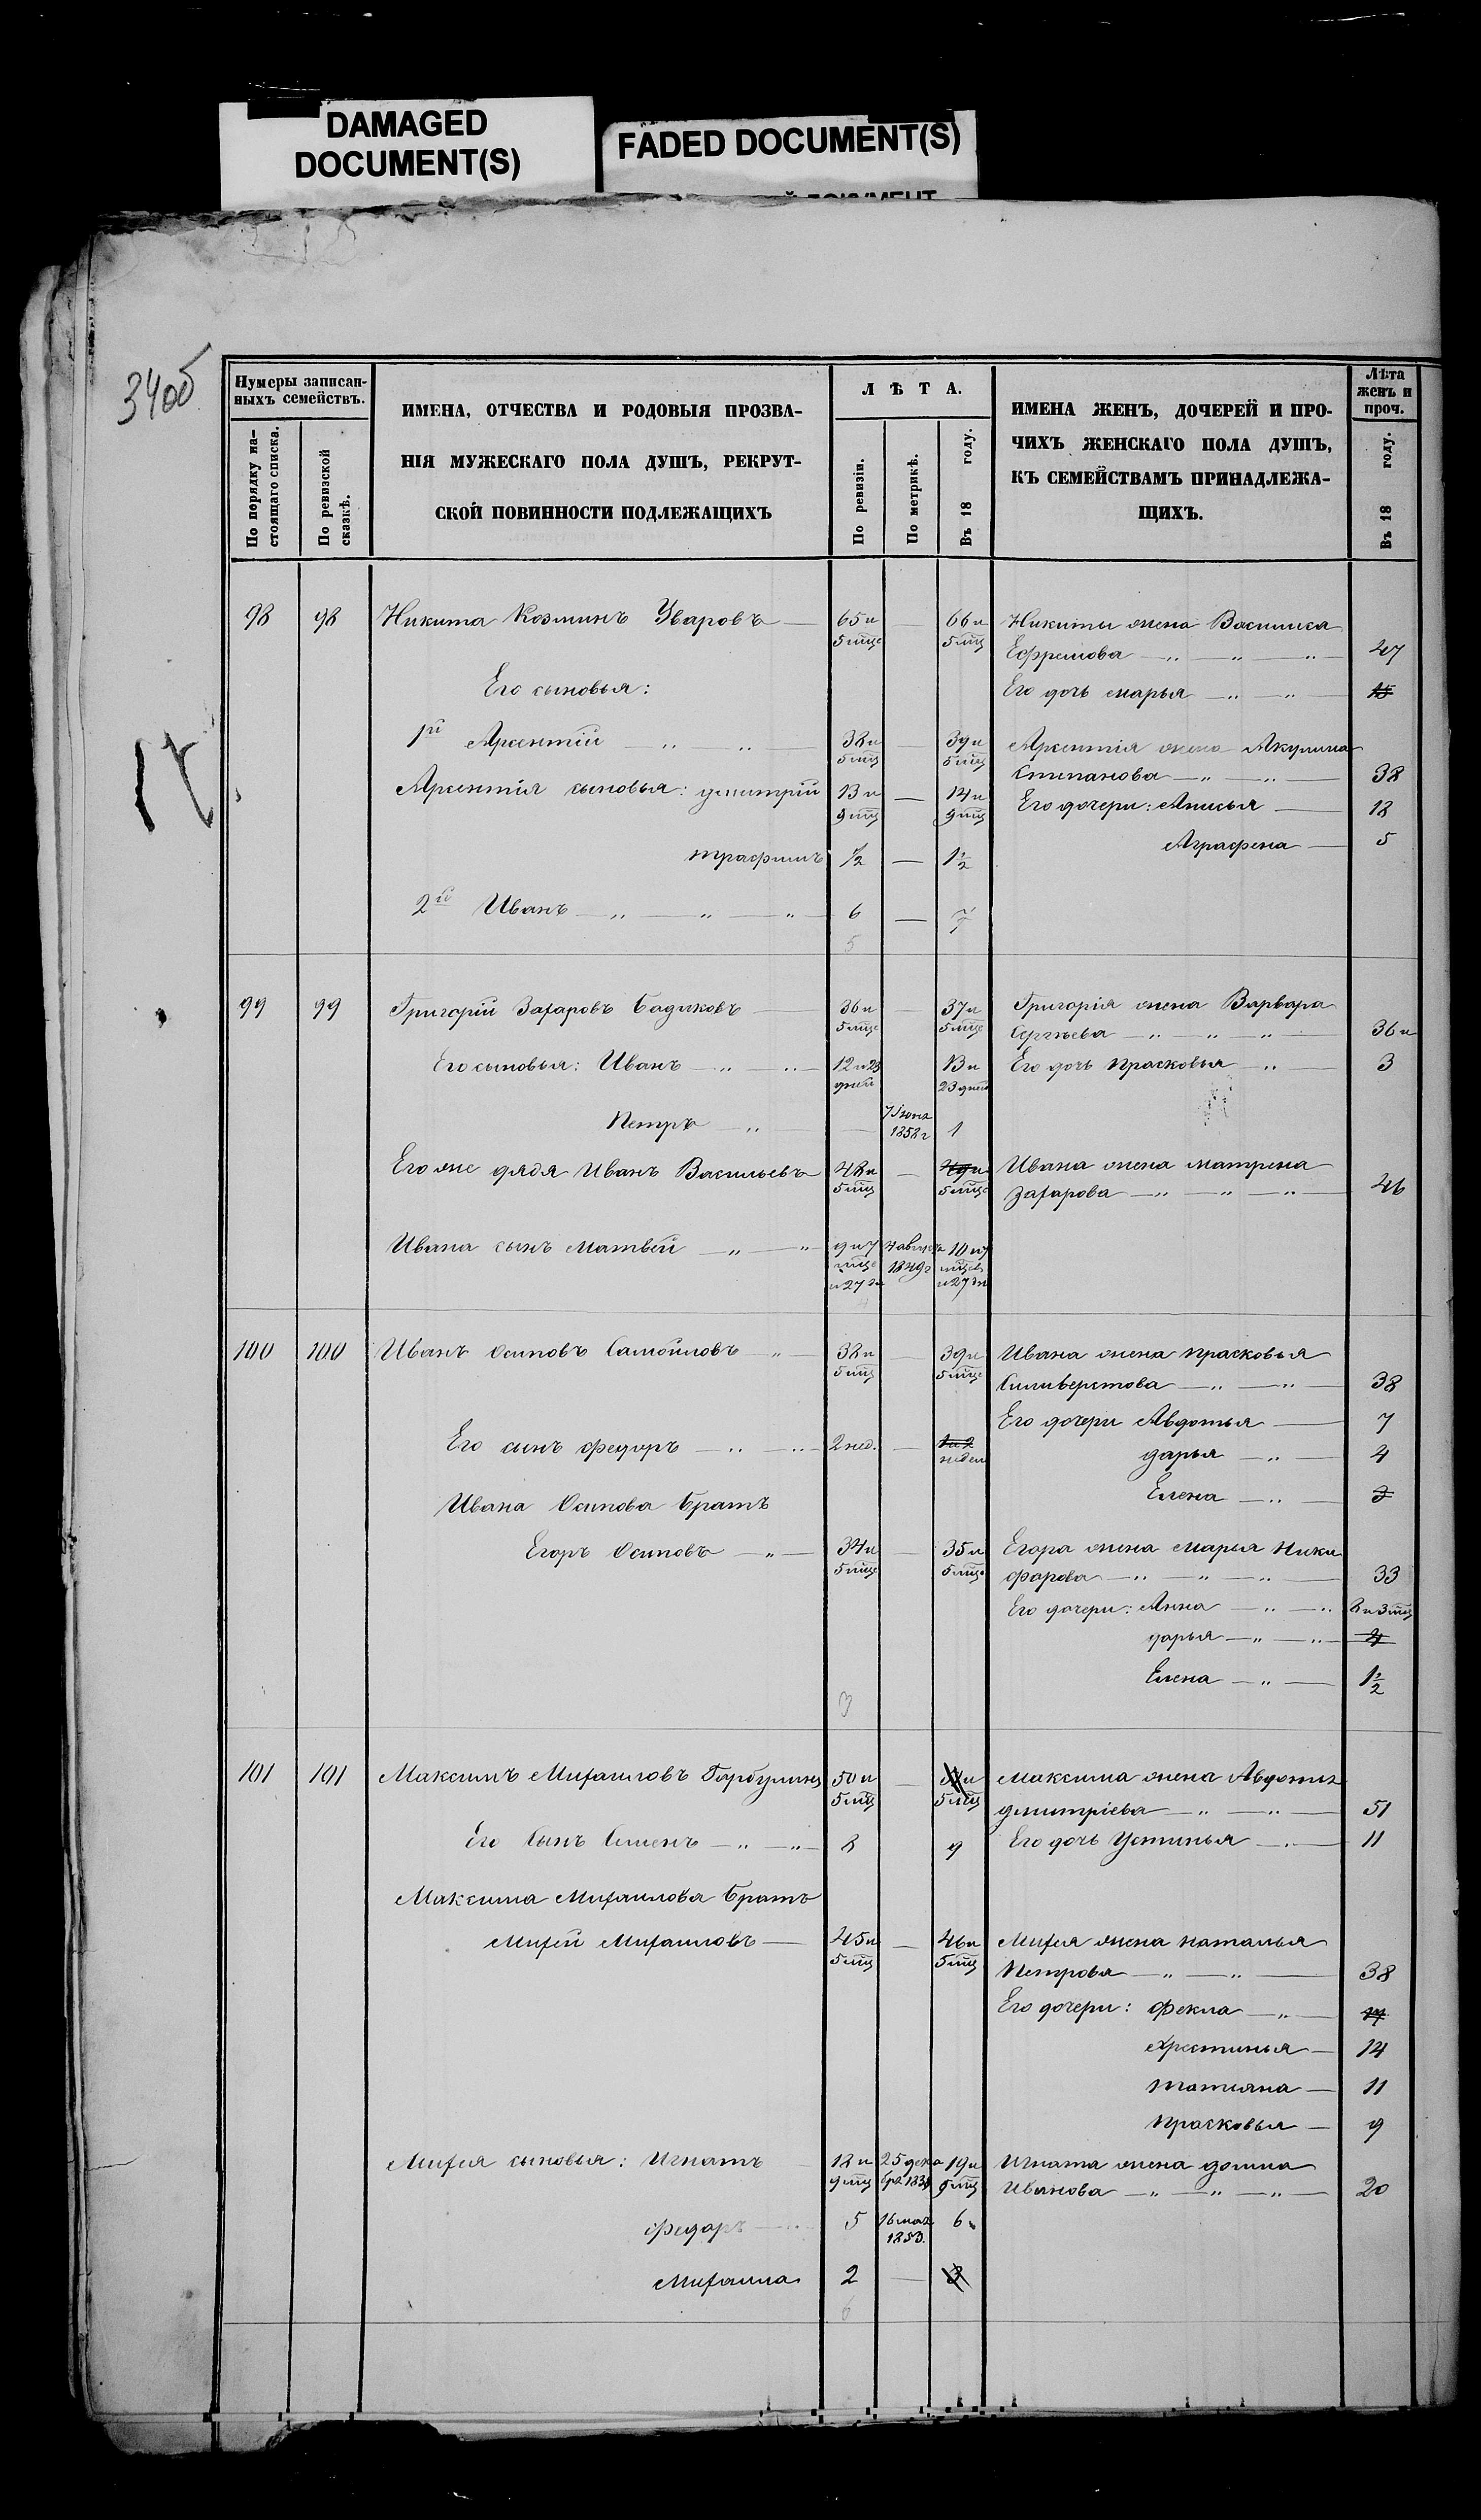 DAMAGED
DOCUMENT(S)
FADED DOCUMENT(S)
34об
Нумеры записан-
ныхъ семействъ.
По порядку на-
стоящаго списка.
По ревизской
сказкѣ.
ИМЕНА, ОТЧЕСТВА И РОДОВЫЯ ПРОЗВА-
НІЯ МУЖЕСКАГО ПОЛА ДУШЪ, РЕКРУТ-
СКОЙ ПОВИННОСТИ ПОДЛЕЖАЩИХЪ
ЛѢТА.
По ревизіи.
По метрикѣ.
Въ 18 году.
ИМЕНА ЖЕНЪ, ДОЧЕРЕЙ И ПРО-
ЧИХЪ ЖЕНСКАГО ПОЛА ДУШЪ,
КЪ СЕМЕЙСТВАМЪ ПРИНАДЛЕЖА-
ЩИХЪ.
Лѣта
женъ и
проч.
Въ 18 году.
98 98 Никита Козминъ Уваровъ 65 и 5 мце 66 и 5 мц Никиты жена Василиса
Ефремова 47
Его сыновья: Его дочь Марья 15
1й Арсентій 38 и 5 мц 39 и 5 мц Арсентія жена Акулина
Степанова 38
Арсентія сыновья: Дмитрій 13 и 9 мц 14 и 9 мц Его дочери: Анисья 18
Аграфена 5
Трафимъ 1/2 1 1/2
2й Иванъ 6 7
5
99 99 Григорій Захаровъ Бадиковъ 36 и 5 мце 37 и 5 мце Григорія жена Варвара
Сергѣева 36 и
Его сыновья: Иванъ 12 и 23 дней 13 и 23 дней Его дочь Прасковья 3
Петръ 7 Іюня 1858 г 1
Его же дядя Иванъ Васильевъ 48 и 5 мц 49 и 5 мце Ивана жена Матрена
Захарова 46
Ивана сынъ Матвей 9 и 7 мце и 27 дн 4 августа 1849 г 10 и 7 мцев и 27 дн
100 100 Иванъ Осиповъ Самойловъ 38 и 5 мц 39 и 5 мце Ивана жена Прасковья
Силиверстова 38
Его дочери Авдотья 7
Его сынъ Федоръ 2 нед. 1 и 2 недел Дарья 4
Елена 2
Ивана Осипова братъ
Егоръ Осиповъ 34 и 5 мце 35 и 5 мце Егора жена Марья Ники
форова 33
Его дочери: Анна 8 и 3 мц
Дарья 4
Елена 1 1/2
3
101 101 Максимъ Михаиловъ 50 и 5 мц 51 и 5 мц Максима жена Авдотья
Дмитріева 51
Его Сынъ Семенъ 8 9 Его дочь Устинья 11
Максима Михаилова братъ
Михей Михаиловъ 45 и 5 мц 46 и 5 мц Михея жена Наталья
Петрова 38
Его дочери: Фекла 17
Хрестинья 14
Татиана 11
Прасковья 9
Михея сыновья: Игнатъ 18 и 9 мц 25 дека бря 1839 19 и 9 мц Игната жена Домна
Иванова 20
Федоръ 5 16 мая 1853. 6
Михаила 2 3
6